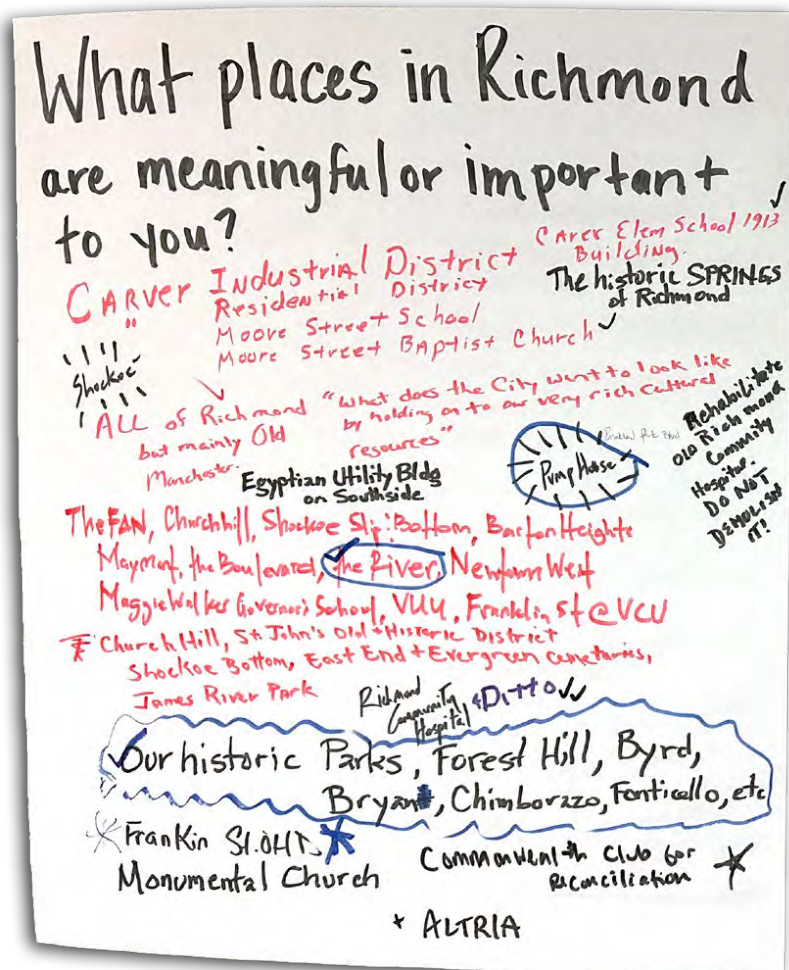 What places in Richmond
are meaningful or important
to you?
CARVER Industrial District
" Residential District
Moore Street School
Moore Street BAptist Church ✓
CArver Elem School 1913 ✓
Building.
The historic SPRINGS
of Richmond
Shockoe
ALL of Richmond
but mainly Old
Manchester.
"What does the City want to look like
by holding on to our very rich cultural
resources"
Egyptian Utility Bldg
on Southside
Pump House
Rehabilitate
OLD Richmond
Community
Hospital.
DO NOT
DEMOLISH
IT!
The FAN, Churchhill, Shockoe Slip: Bottom, Barton Heights
Maymont, the Boulevard, the River, Newtown West
Maggie Walker Governor's School, VUU, Franklin St @ VCU
Church Hill, St John's Old + Historic District
Shockoe Bottom, East End + Evergreen cemetaries,
James River Park
Richmond
Community
Hospital
Ditto ✓✓
✓ Our historic Parks, Forest Hill, Byrd,
Bryan, Chimborazo, Fonticello, etc
Frankin St. OHD
Monumental Church
Commonwealth Club for
Reconciliation
+ ALTRIA